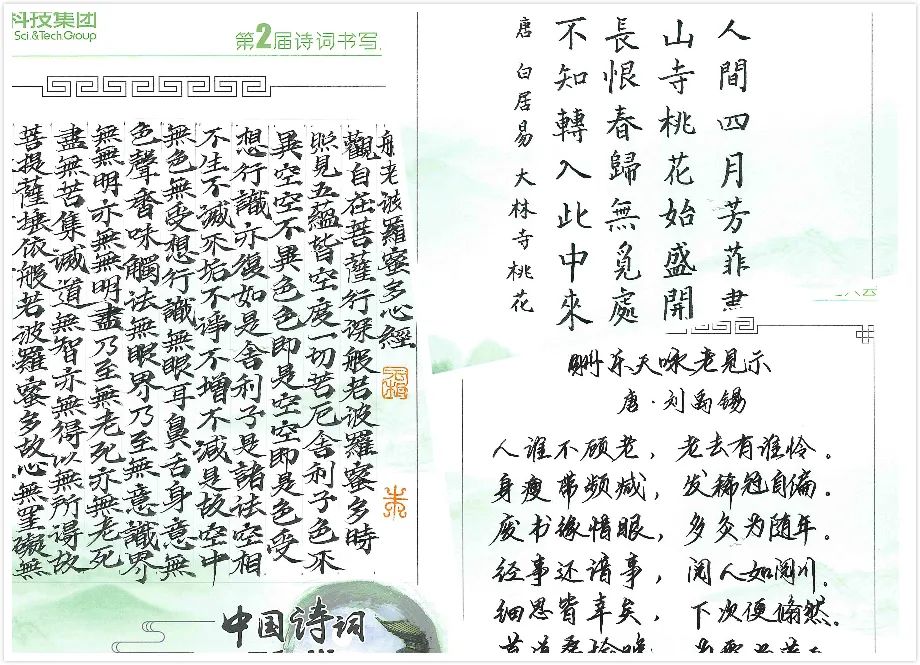 科技集团
Sci.&Tech.Group
第2届诗词书写
般若波羅蜜多心經
觀自在菩薩行深般若波羅蜜多時
照見五蘊皆空度一切苦厄舍利子色不
異空空不異色色即是空空即是色受
想行識亦復如是舍利子是諸法空相
不生不滅不垢不淨不增不減是故空中
無色無受想行識無眼耳鼻舌身意無
色聲香味觸法無眼界乃至無意識界
無無明亦無無明盡乃至無老死亦無老死
盡無苦集滅道無智亦無得以無所得故
菩提薩埵依般若波羅蜜多故心無罣礙無
中国诗词
人間四月芳菲盡
山寺桃花始盛開
長恨春歸無覓處
不知轉入此中來
唐 白居易 大林寺桃花
酬乐天咏老见示
唐·刘禹锡
人谁不顾老，老去有谁怜。
身瘦带频减，发稀冠自偏。
废书缘惜眼，多灸为随年。
经事还谙事，阅人如阅川。
细思皆幸矣，下次便翛然。